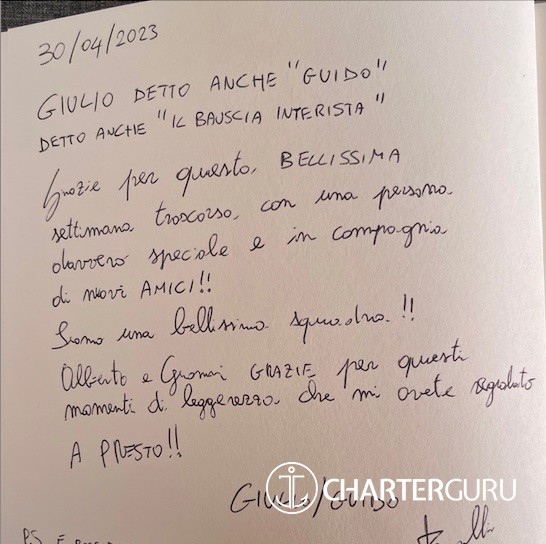 30/04/2023
GIULIO DETTO ANCHE "GUIDO"
DETTO ANCHE "IL BAUSCIA INTERISTA"
Grazie per questa BELLISSIMA
settimana trascorsa, con una persona
davvero speciale e in compagnia
di nuovi AMICI!!
Siamo una bellissima squadra!!
Alberto e GRAZIE per questi
momenti di leggerezza che mi avete regalato
A PRESTO!!
GIULIO/GUIDO
CHARTERGURU
PS